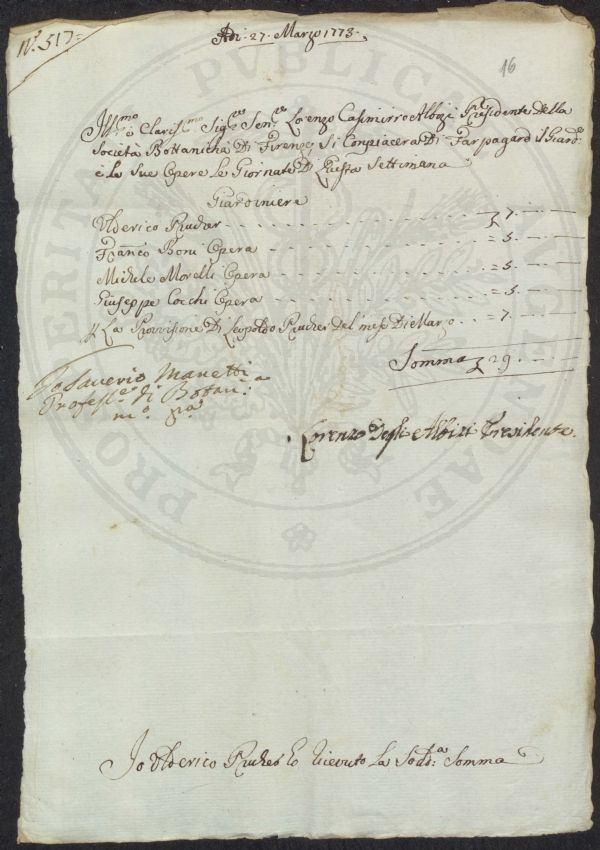 N.° 517=
Adi: 27. Marzo 1773.
16
Ill:mo e Claris:mo Sig:re Sen:re Lorenzo Casimirro Albizi Presidente della
Società Bottanicha Di Firenze, Si Conpiacera Di Far pagare il Giard:e
e le Sue Opere Le Giornate Di Questa Settimana
Giardiniere
Ulderico Prucher 7.
Franco Boni Opera = 5.
Michele Morelli Opera = 5.
Giuseppe Cocchi Opera = 5.
La Provisione Di Leopoldo Prucher del mese Di Marzo = 7.
Somma 29.
Io Saverio Manetti
Profess:re di Botan:a
m:o p:a
Lorenzo Degli Albizi Presidente.
Io Ulderico Prucher ho Ricevuto La Sodd:a Somma
PROSPERITATI PUBLICAE AUGENDAE